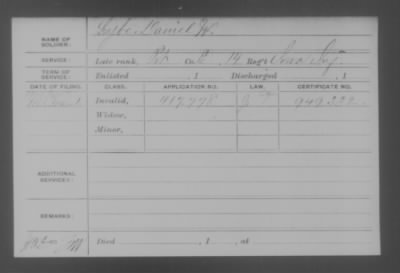 NAME OF SOLDIER: Daniel W.
SERVICE: Late rank, Pvt Co. 14 Reg't Inf.
TERM OF SERVICE: Enlisted , 1 Discharged , 1
DATE OF FILING. CLASS. APPLICATION NO. LAW. CERTIFICATE NO.
Invalid, 417,778 949,228
Widow,
Minor,
ADDITIONAL SERVICES:
REMARKS:
Died , 1 , at